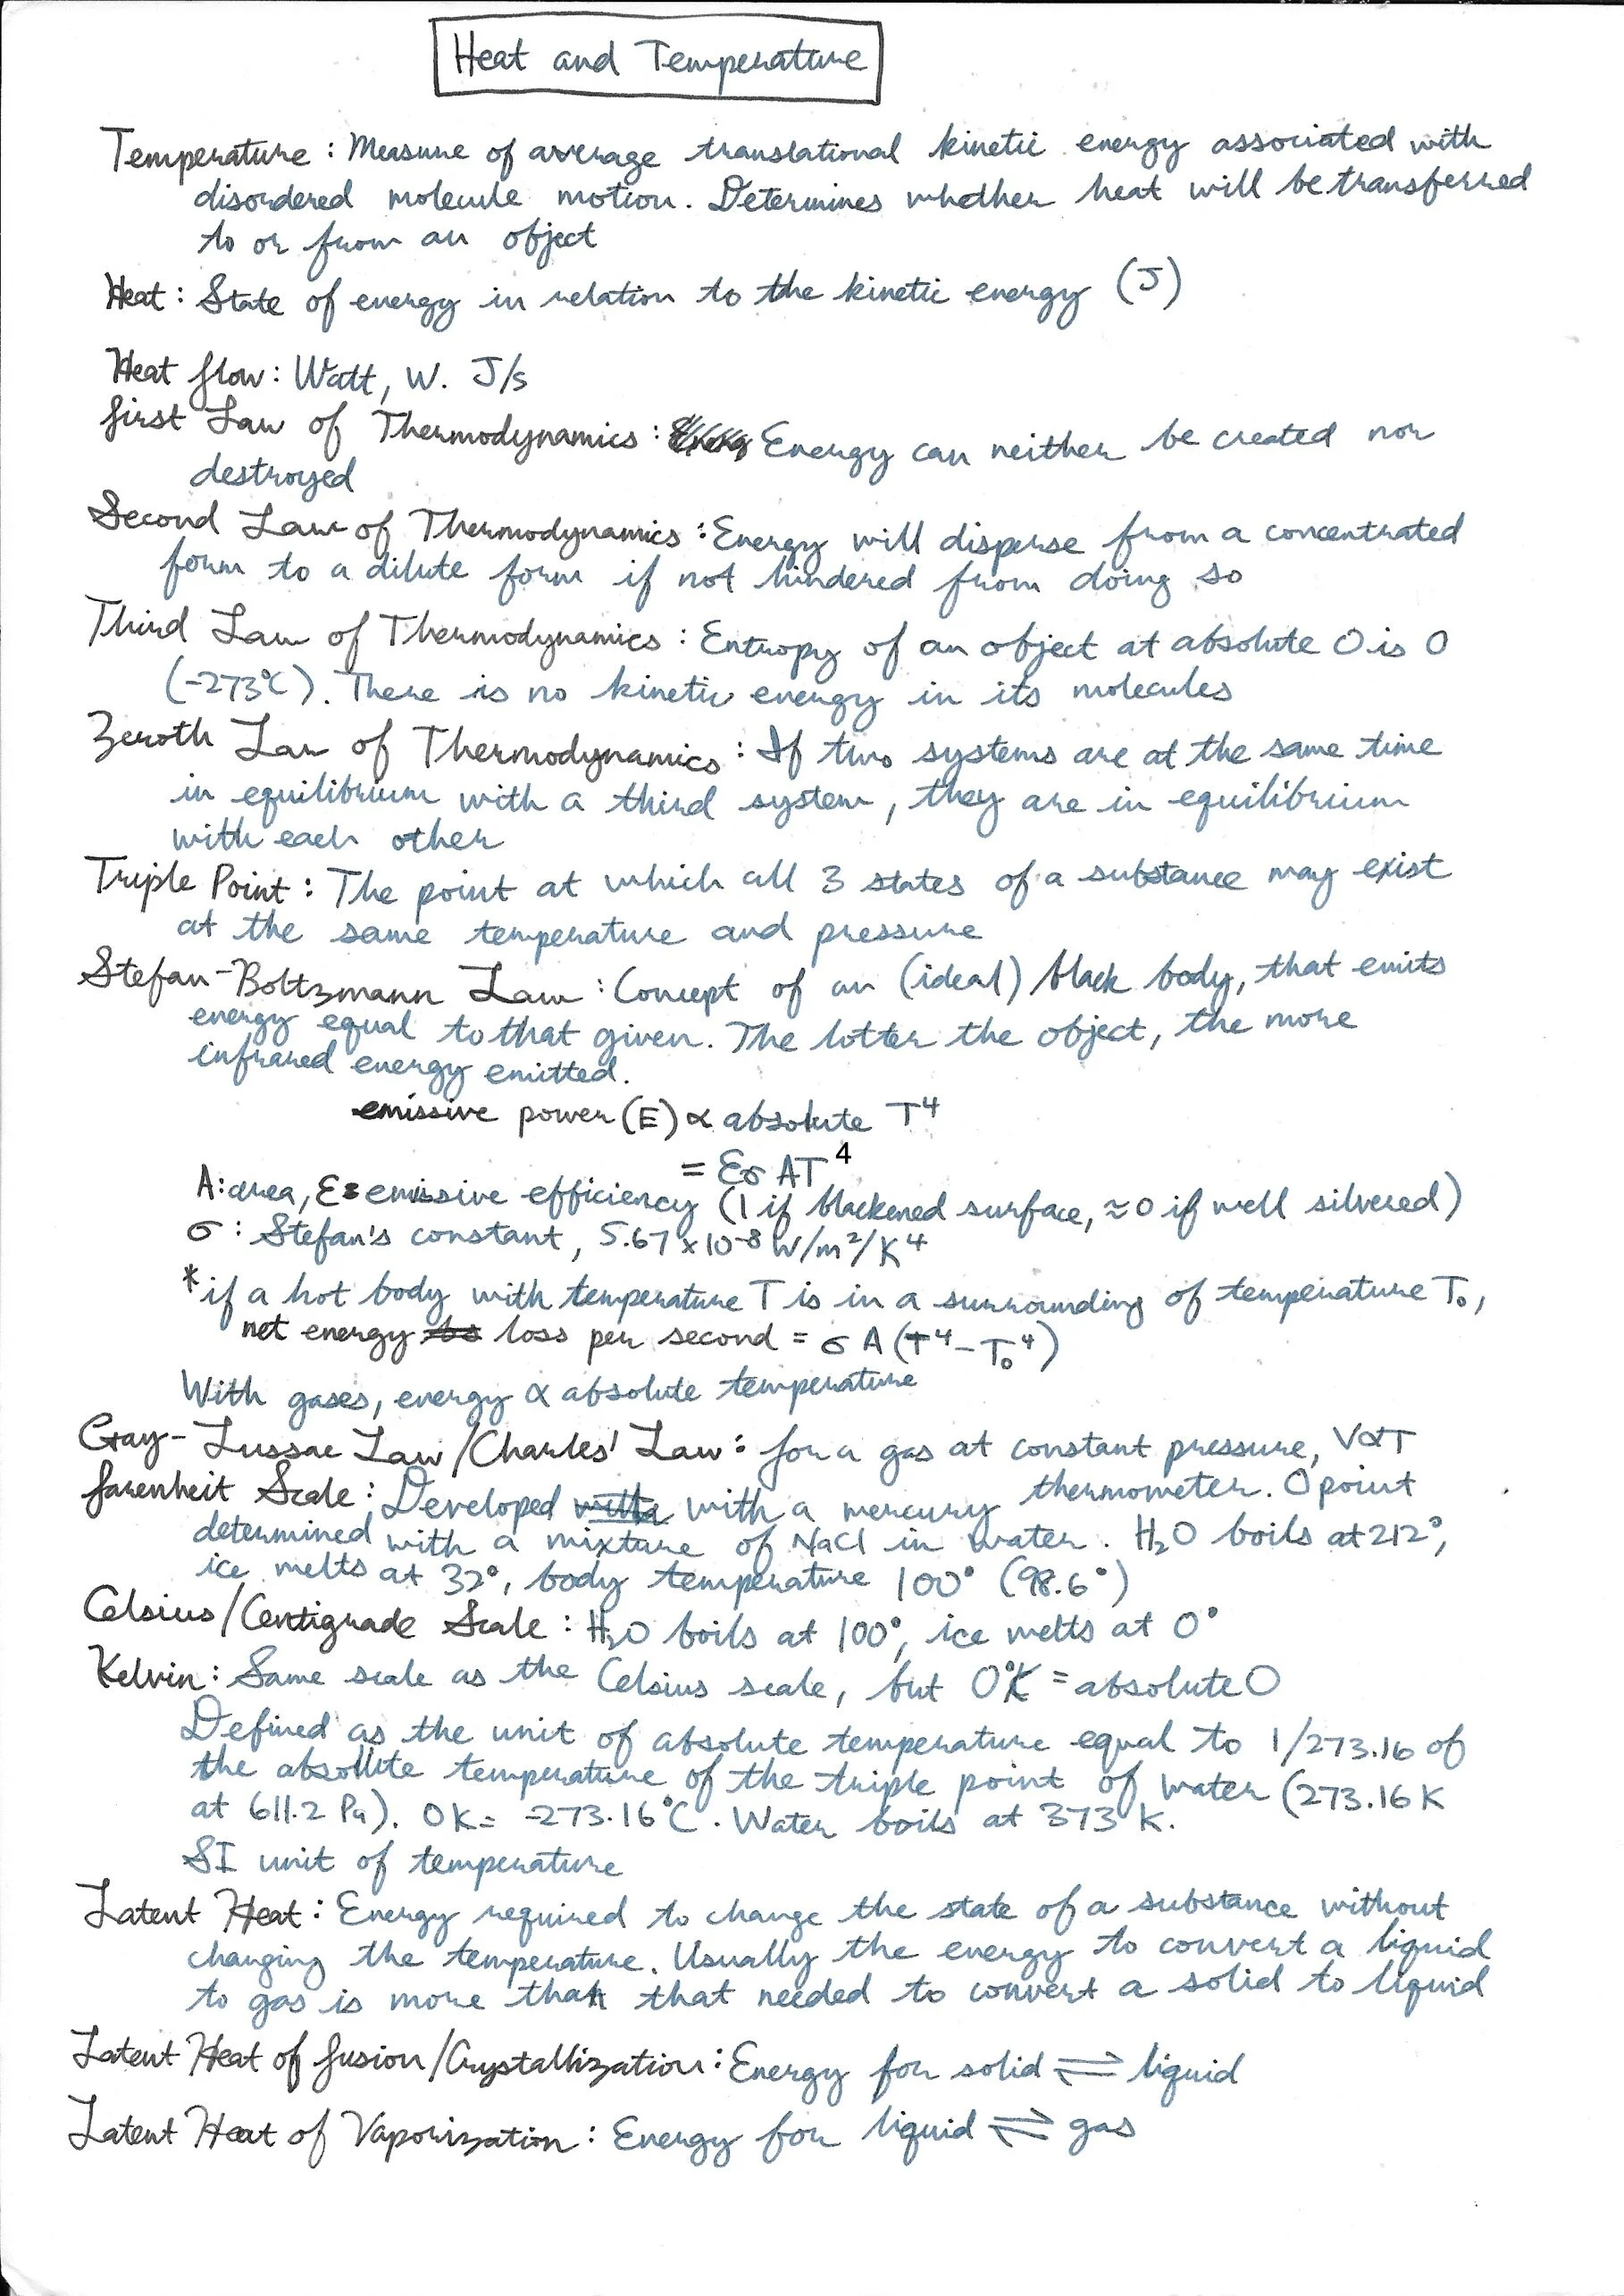 Heat and Temperature
Temperature: Measure of average translational kinetic energy associated with
disordered molecule motion. Determines whether heat will be transferred
to or from an object
Heat: State of energy in relation to the kinetic energy (J)
Heat flow: Watt, W. J/s
First Law of Thermodynamics: Energy can neither be created nor
destroyed
Second Law of Thermodynamics: Energy will disperse from a concentrated
form to a dilute form if not hindered from doing so
Third Law of Thermodynamics: Entropy of an object at absolute 0 is 0
(-273°C). There is no kinetic energy in its molecules
Zeroth Law of Thermodynamics: If two systems are at the same time
in equilibrium with a third system, they are in equilibrium
with each other
Triple Point: The point at which all 3 states of a substance may exist
at the same temperature and pressure
Stefan-Boltzmann Law: Concept of an (ideal) black body, that emits
energy equal to that given. The hotter the object, the more
infrared energy emitted.
emissive power (E) ∝ absolute T⁴
= ƐσAT⁴
A: area, Ɛ= emissive efficiency (1 if blackened surface, ≈0 if well silvered)
σ: Stefan's constant, 5.67 x 10⁻⁸ W/m²/K⁴
*if a hot body with temperature T is in a surrounding of temperature T₀,
net energy loss per second = σA(T⁴-T₀⁴)
With gases, energy ∝ absolute temperature
Gay-Lussac Law/Charles' Law: for a gas at constant pressure, V∝T
Farenheit Scale: Developed with a mercury thermometer. 0 point
determined with a mixture of NaCl in water. H₂O boils at 212°,
ice melts at 32°, body temperature 100° (98.6°)
Celsius/Centigrade Scale: H₂O boils at 100°, ice melts at 0°
Kelvin: Same scale as the Celsius scale, but 0°K = absolute 0
Defined as the unit of absolute temperature equal to 1/273.16 of
the absolute temperature of the triple point of water (273.16 K
at 611.2 Pa). 0K = -273.16°C. Water boils at 373 K.
SI unit of temperature
Latent Heat: Energy required to change the state of a substance without
changing the temperature. Usually the energy to convert a liquid
to gas is more than that needed to convert a solid to liquid
Latent Heat of Fusion/Crystallization: Energy for solid ⇌ liquid
Latent Heat of Vaporization: Energy for liquid ⇌ gas